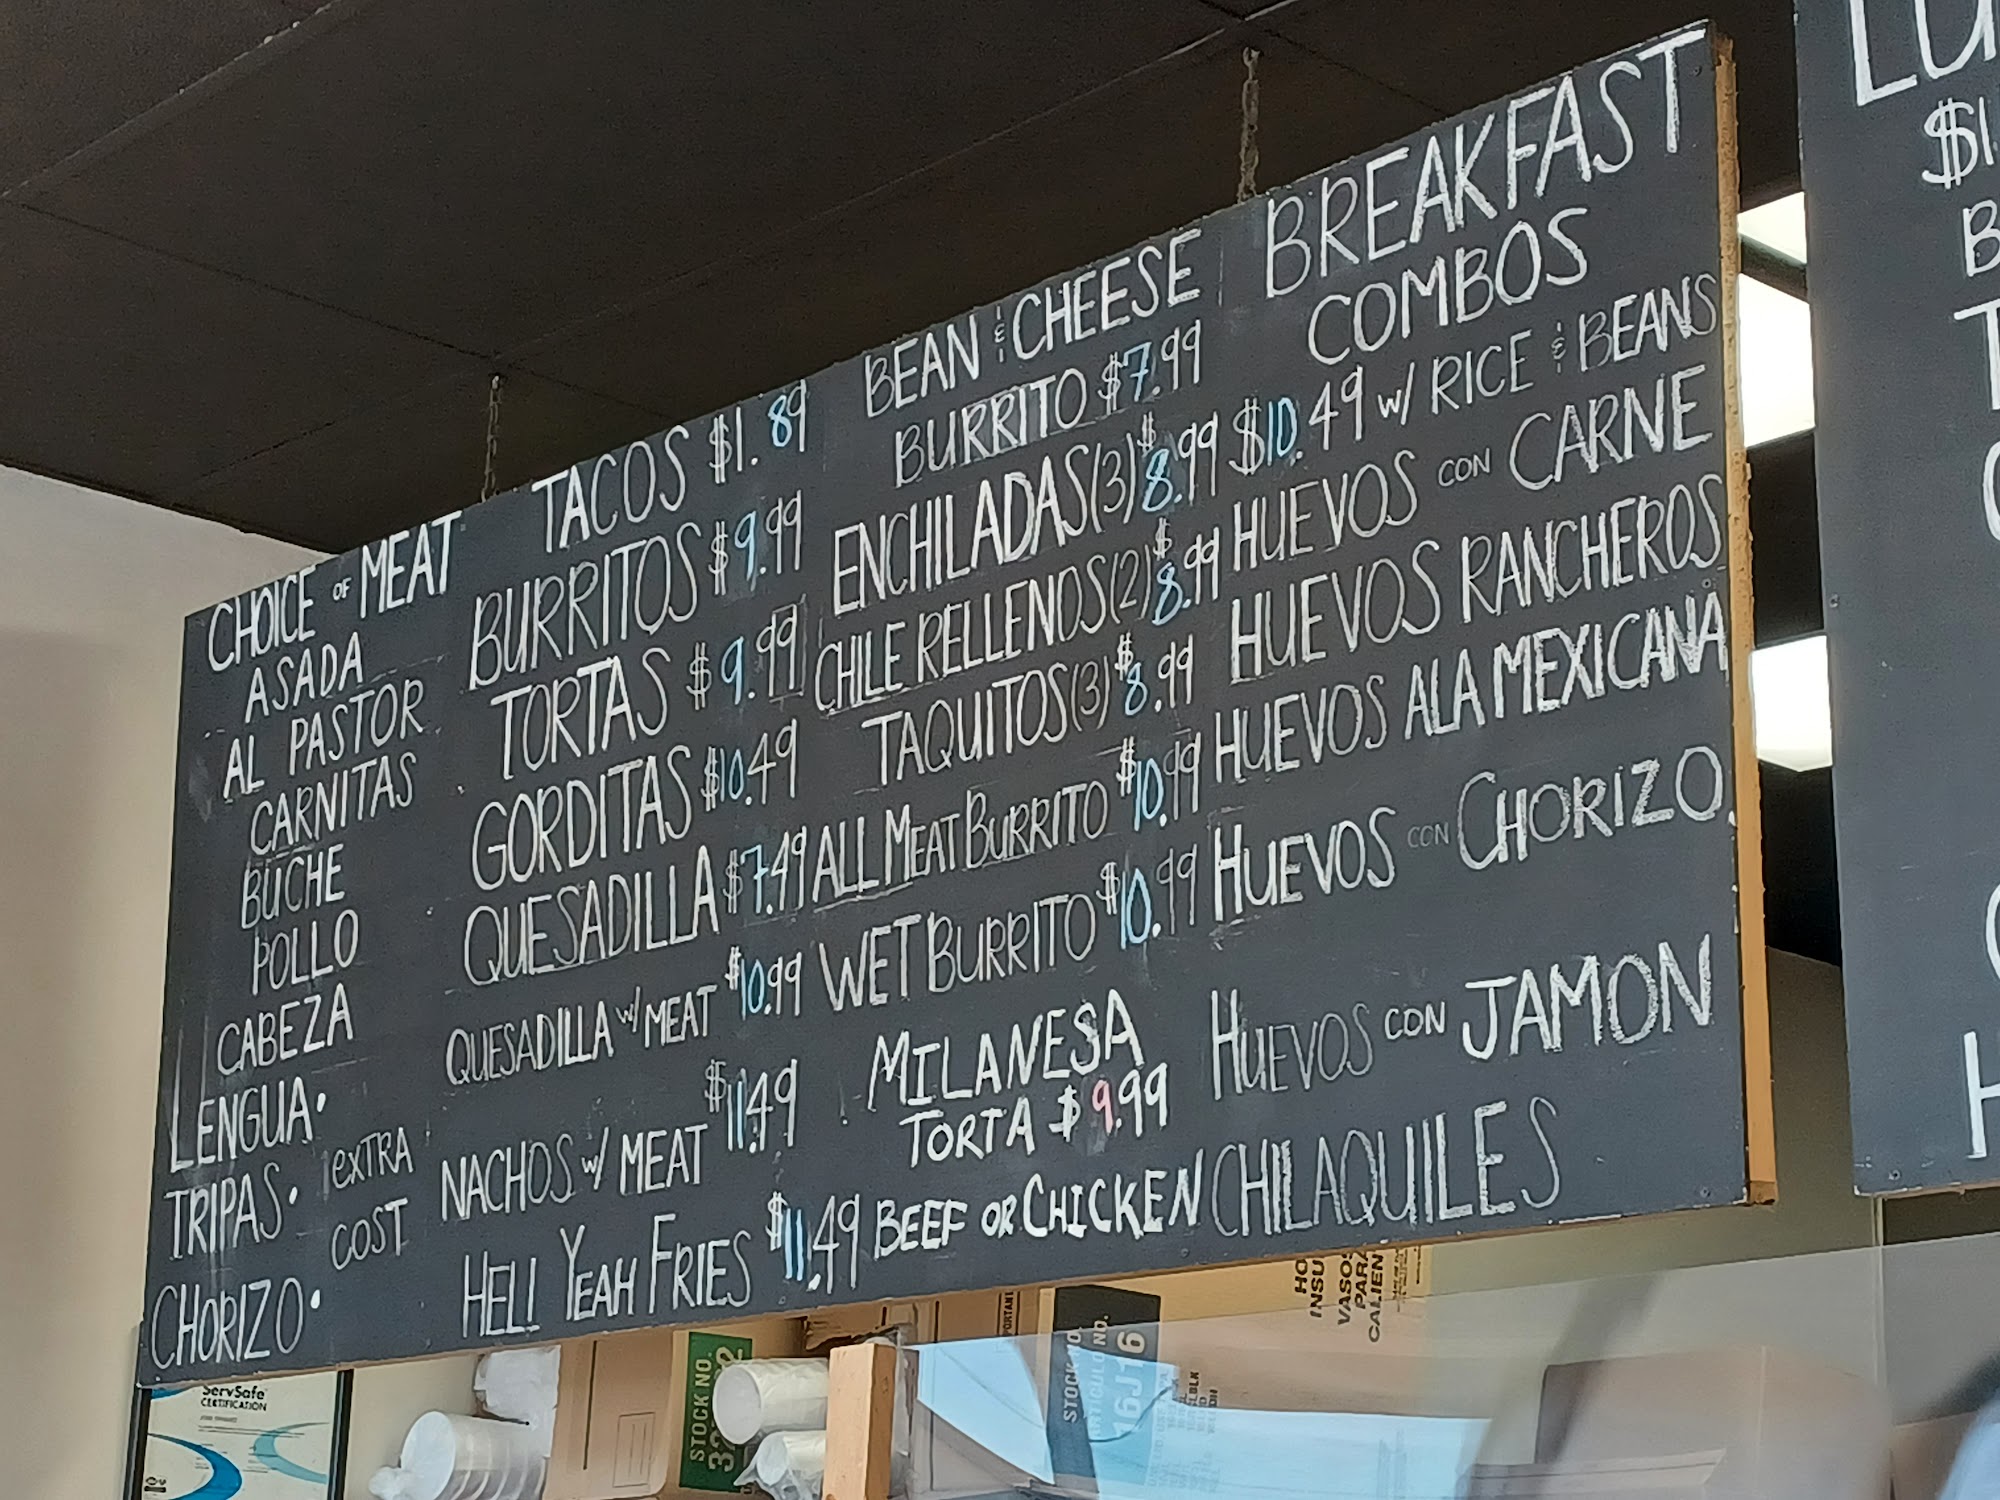 CHOICE OF MEAT
ASADA
AL PASTOR
CARNITAS
BUCHE
POLLO
CABEZA
LENGUA•
TRIPAS•
CHORIZO•
EXTRA
COST
TACOS $1.89
BURRITOS $9.99
TORTAS $9.99
GORDITAS $10.49
QUESADILLA $7.49
QUESADILLA W/ MEAT $10.99
NACHOS W/ MEAT $11.49
HELL YEAH FRIES $11.49
BEAN & CHEESE
BURRITO $7.99
ENCHILADAS(3) $8.99
CHILE RELLENOS(2) $8.99
TAQUITOS(3) $8.99
ALL MEAT BURRITO $10.99
WET BURRITO $10.99
MILANESA
TORTA $9.99
BEEF OR CHICKEN
BREAKFAST
COMBOS
$10.49 W/ RICE & BEANS
HUEVOS CON CARNE
HUEVOS RANCHEROS
HUEVOS ALA MEXICANA
HUEVOS CON CHORIZO
HUEVOS CON JAMON
CHILAQUILES
LU
$1
B
ServSafe
CERTIFICATION
STOCK NO.
STOCK NO.
ARTICULO NO.
16J16
HO
INSU
VASO
PARA
CALIEN